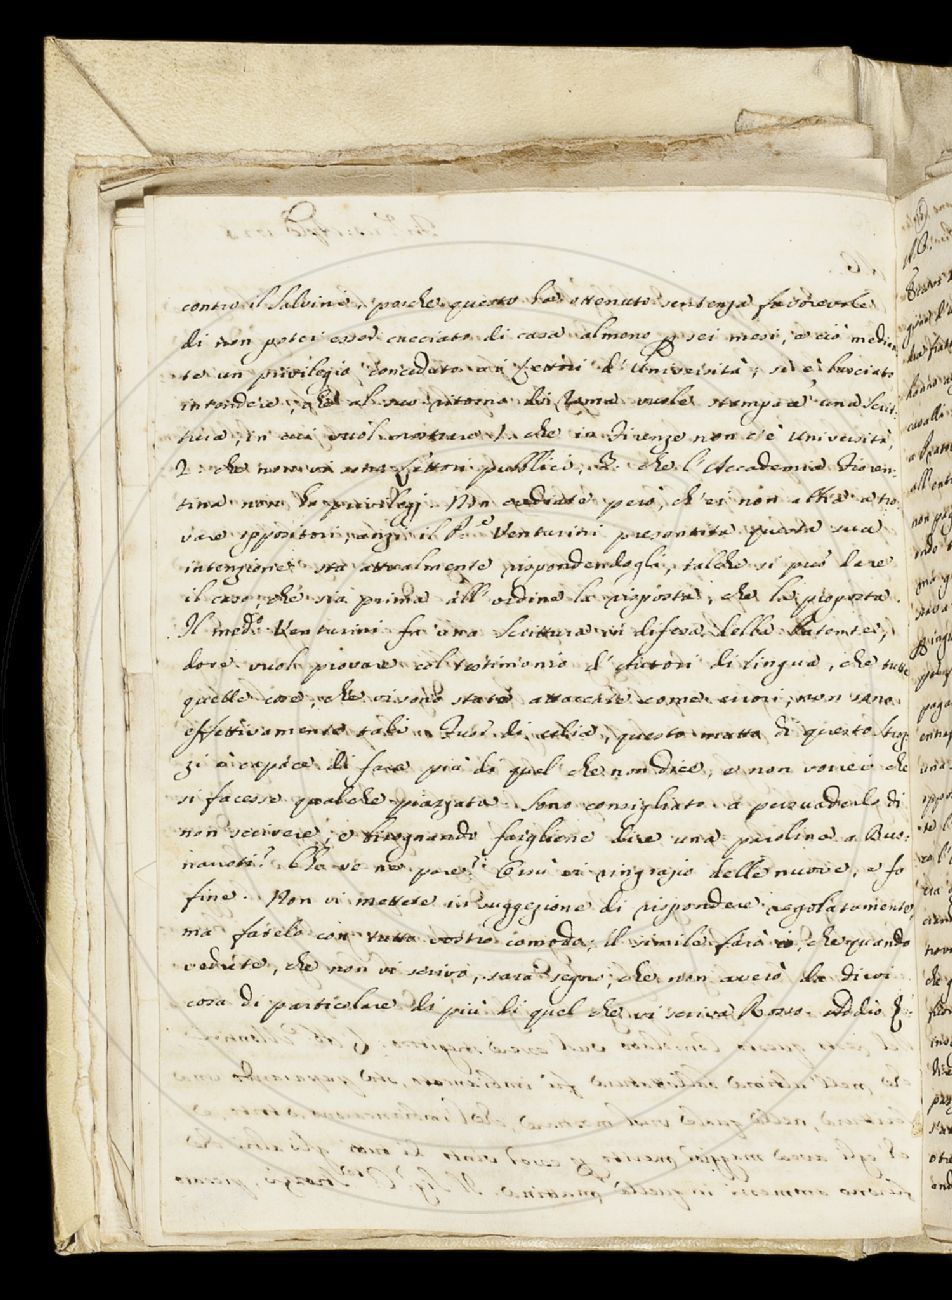 contro il Salvini, perche questo ha ottenuto sentenza favorevole
di non poter esser cacciato di casa almeno p sei mesi, e ciò median-
te un privilegio conceduto a i Lettori d'Università; si è lasciato
intendere, che al suo ritorno di Roma vuole stampare una Scrit-
tura, in cui vuol mostrare 1. che in Firenze non c'è Università,
2. che non vi sono Lettori pubblici, 3. che l'Accademia Fioren-
tina non ha privilegj. Non crediate però, ch'ei non abbia a tro-
vare oppositori, anzi il P.e Venturini presentita questa sua
intenzione sta attualmente rispondendogli, talche si può dare
il caso, che sia prima all'ordine la risposta, che la proposta.
Il med.o Venturini fa una Scrittura in difesa della Patente,
dove vuol provare col testimonio d'Autori di lingua, che tutte
quelle cose, che vi sono state attaccate come errori, non sono
effettivamente tali. questo matto di questo Stroz-
zi è capace di fare più di quel che non dice, e non vorrei che
si facesse qualche piazzata. Sono consigliato a persuaderlo di
non scrivere, e bisognando fargliene dire una parolina a Buo-
naroti? Che ve ne pare? vi ringrazio delle nuove, e fo
fine. Non vi mettete in suggezione di rispondere regolatamente,
ma fatelo con tutto vostro comodo; il simile farò io, che quando
vedrete, che non vi scrivo, sarà segno, che non averò da dirvi
cosa di particolare di più di quel che vi scriva Rosso. addio